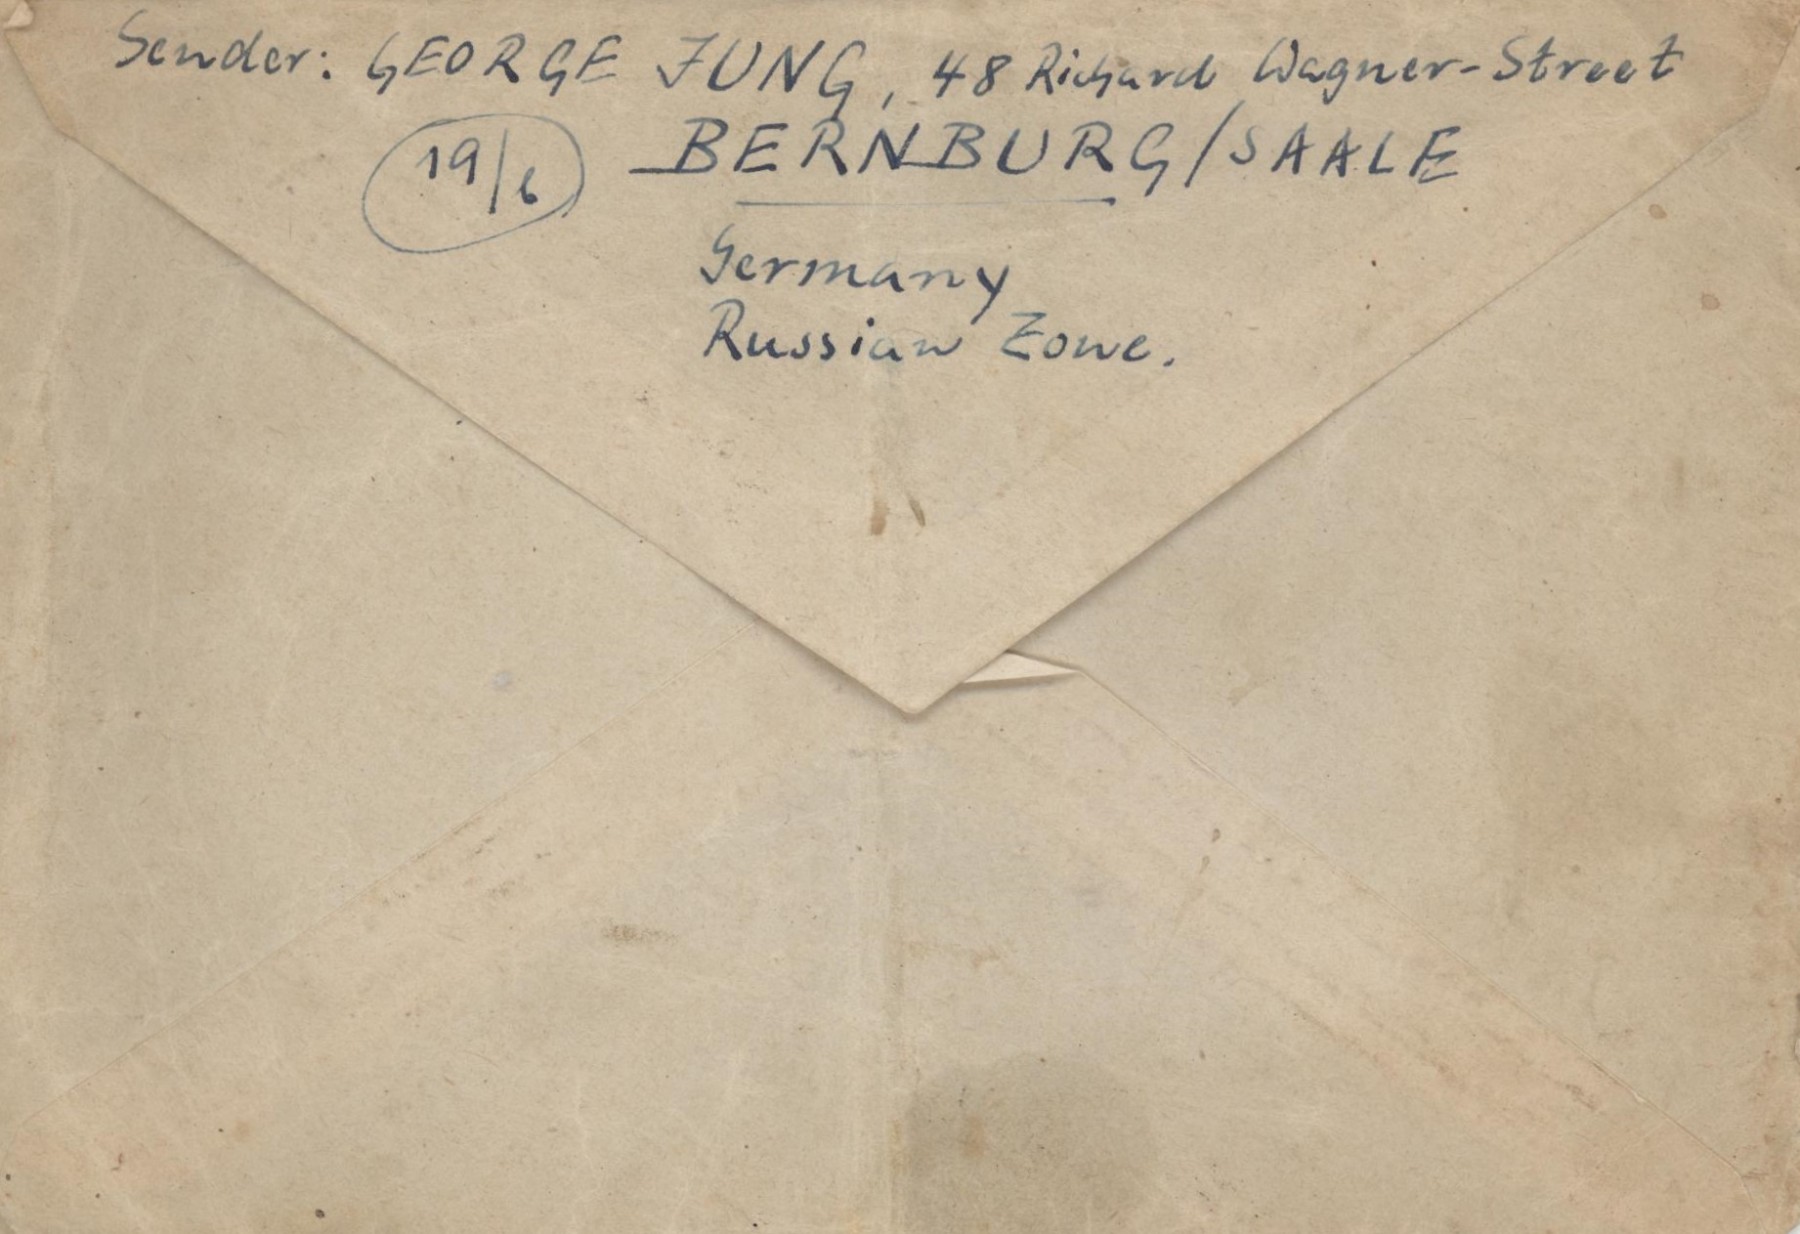 Sender: GEORGE JUNG, 48 Richard Wagner-Street
19/6 BERNBURG/SAALE
Germany
Russian Zone.